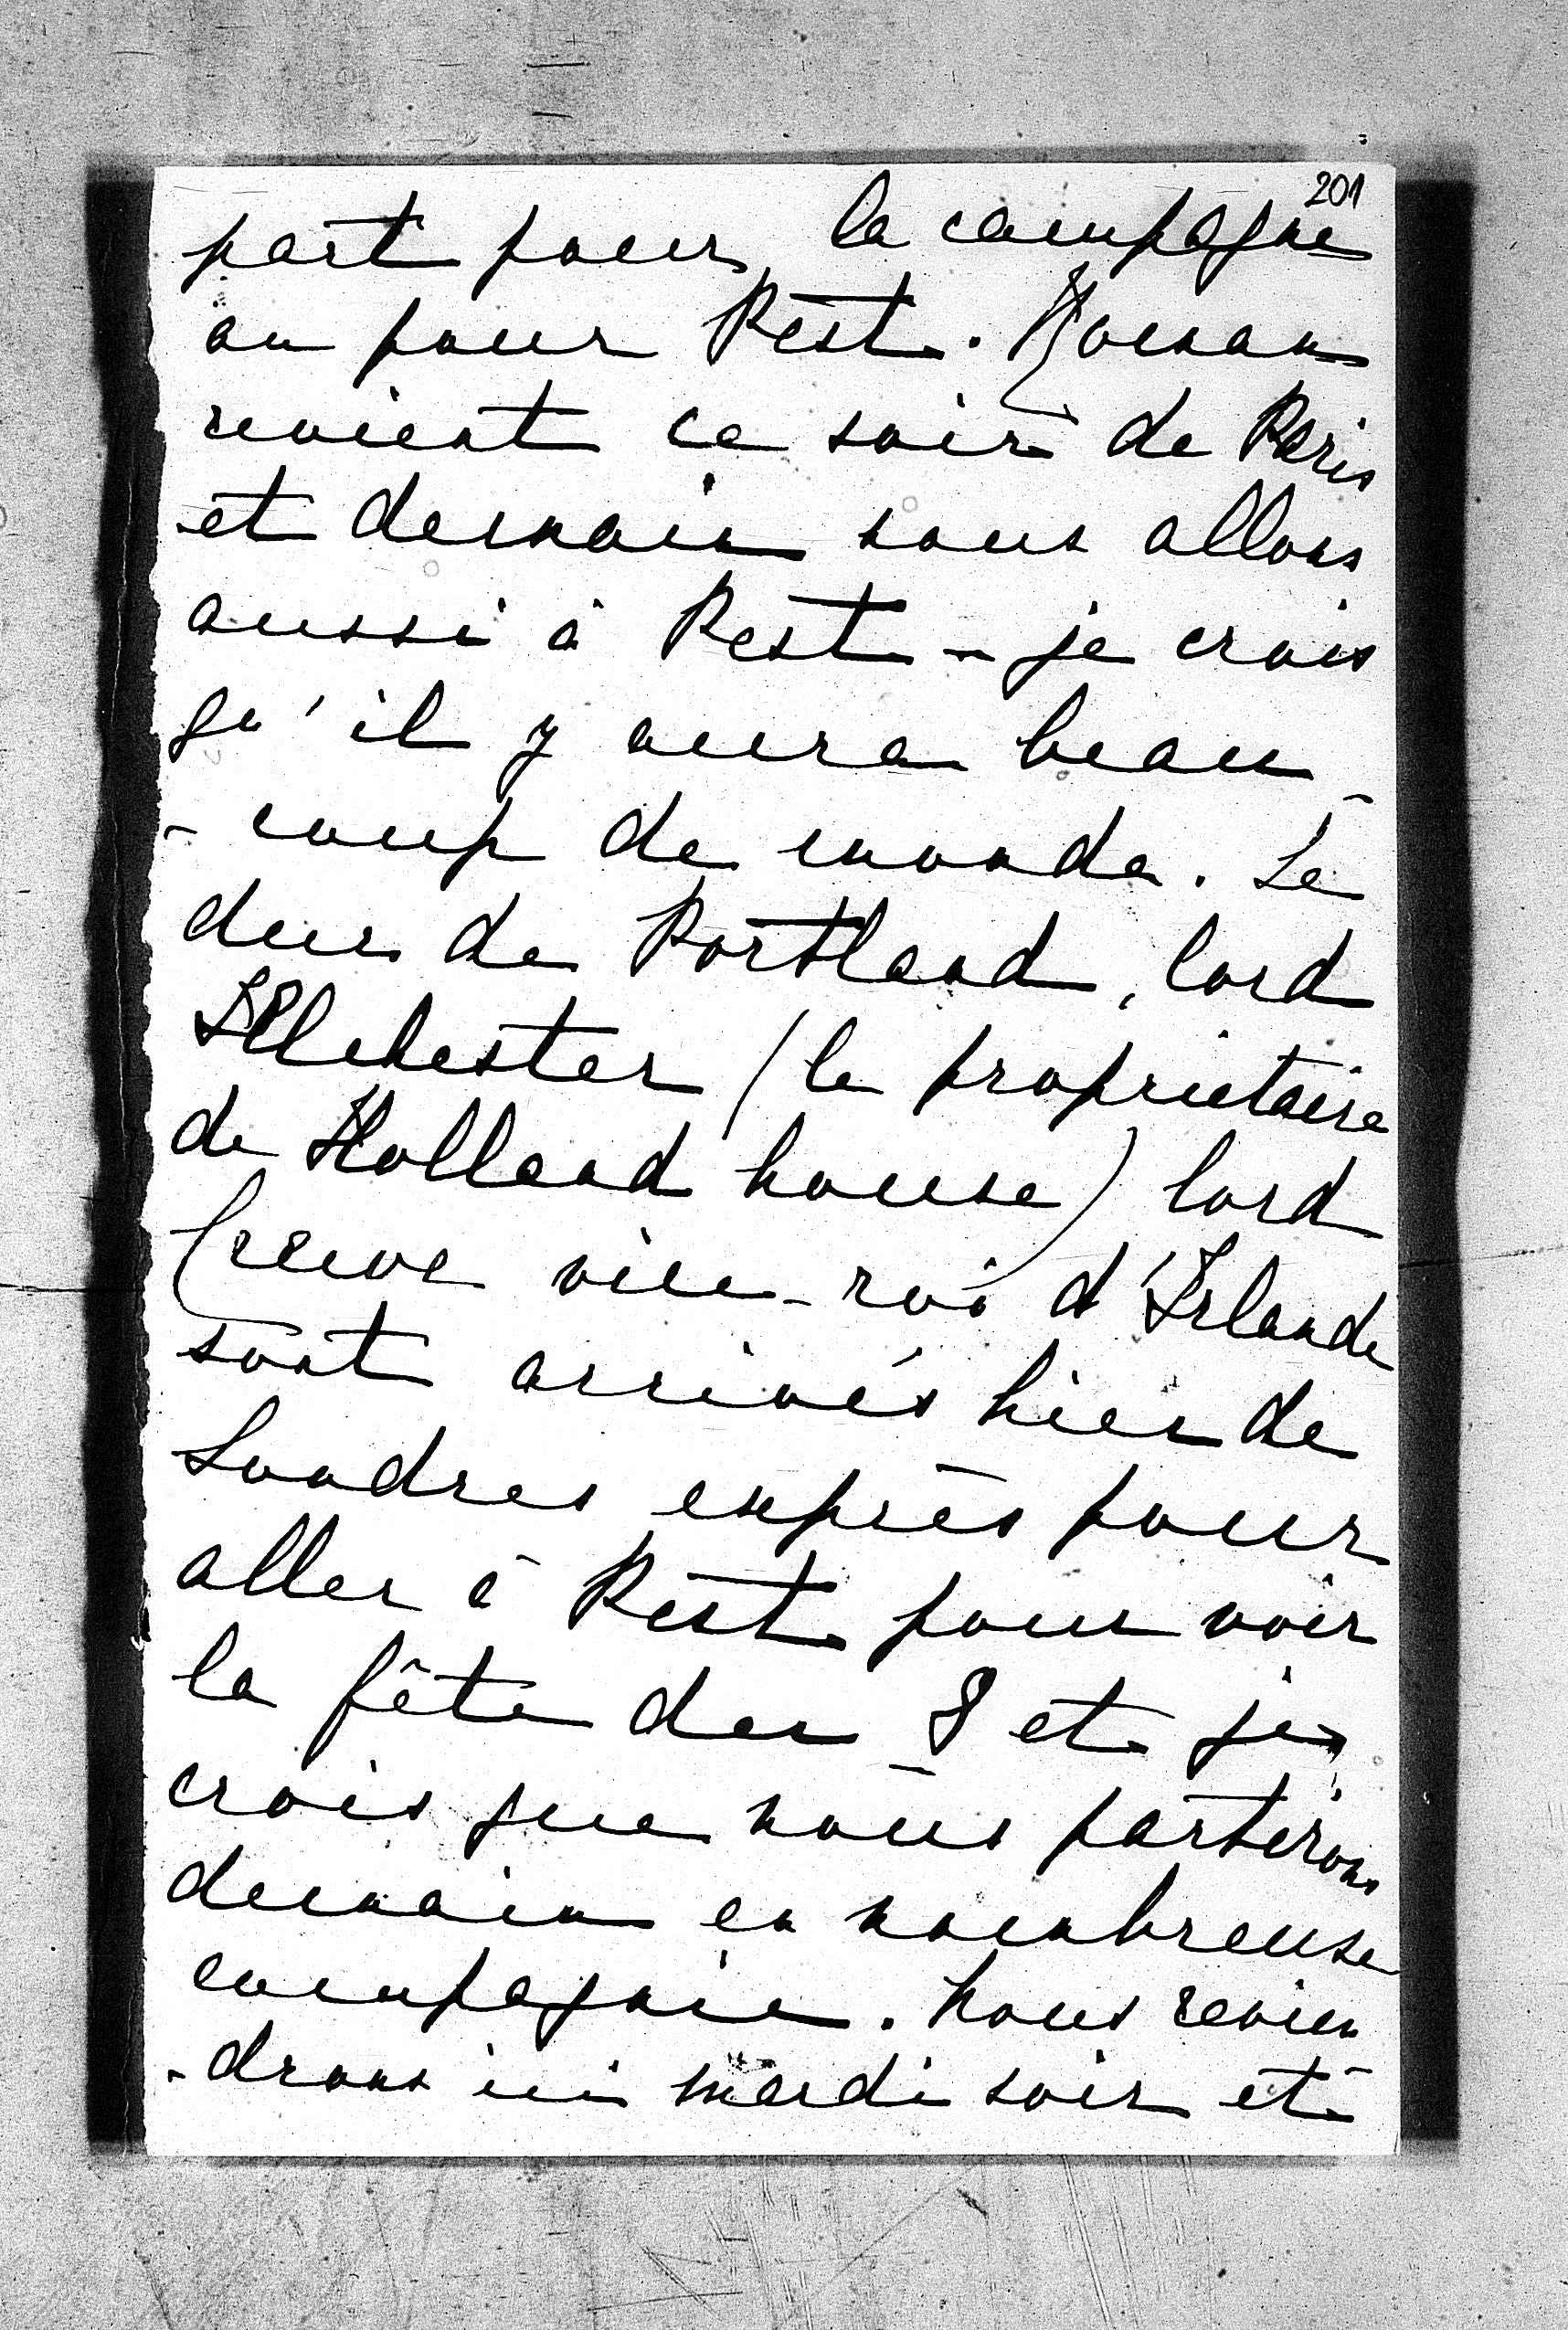 201
part pour la campagne
ou pour Pest. Roman
revient ce soir de Paris
et demain nous allons
aussi à Pest - je crois
qu'il y aura beau
- coup de monde. Le
duc de Portland, lord
Ilchester (le proprietaire
de Holland house) lord
Crewe vice-roi d'Irlande
sont arrivés hier de
Londres exprès pour
aller à Pest pour voir
la fête du 8 et je
crois que nous partirons
demain en nombreuse
compagnie. Nous revien
- drons ici mardi soir et